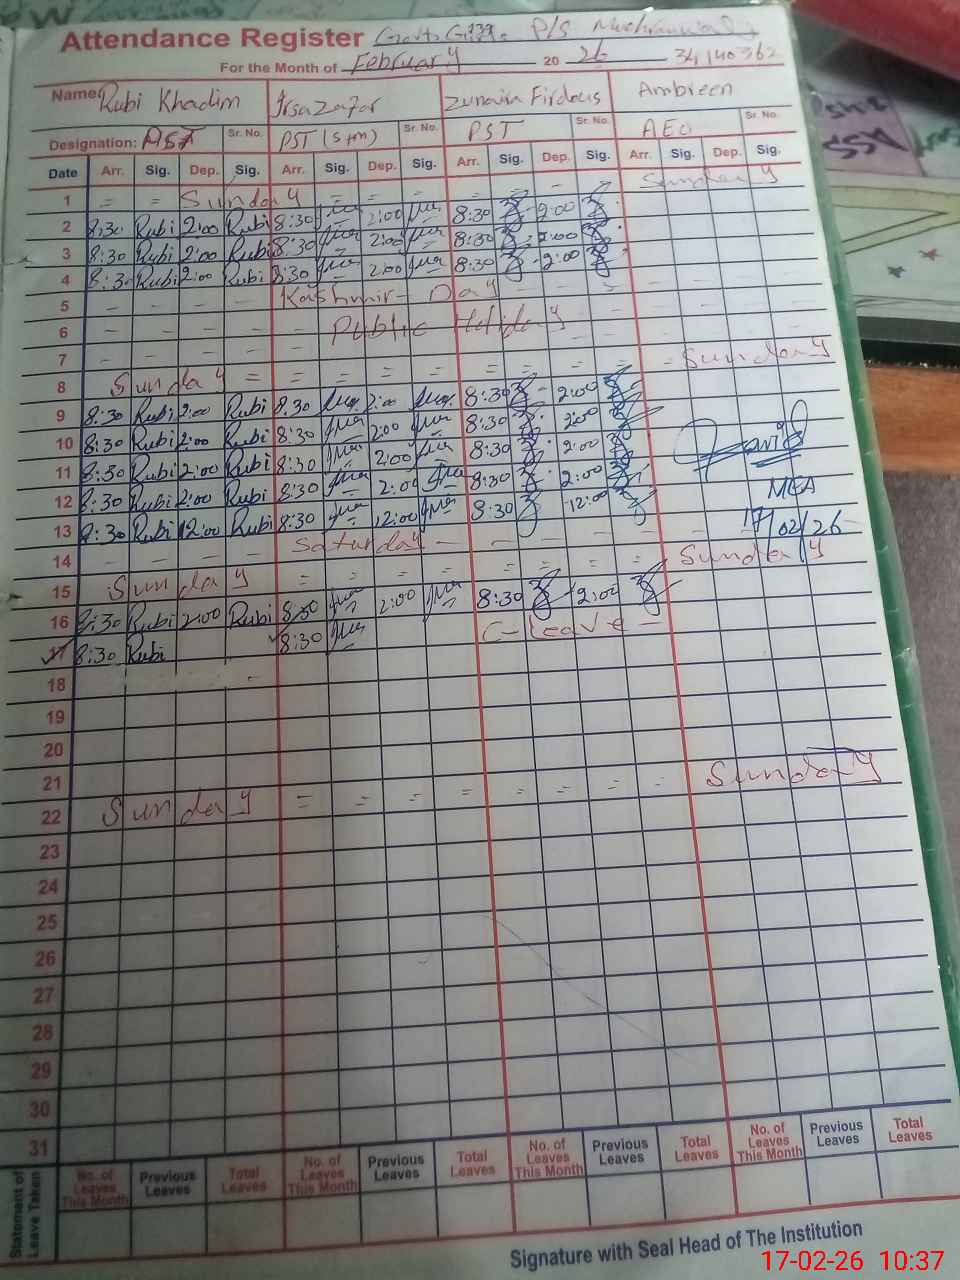 Attendance Register Govt. G. P/S
For the Month of February 20 26 34140362
Name: Rubi Khadim Irsa Zafar Zunaira Firdous Ambreen
Designation: PST Sr. No. PST (s+m) Sr. No. PST Sr. No. AEO Sr. No.
Date Arr. Sig. Dep. Sig. Arr. Sig. Dep. Sig. Arr. Sig. Dep. Sig. Arr. Sig. Dep. Sig.
1 = = Sunday = = = = = = - - Sunday
2 8:30 Rubi 2:00 Rubi 8:30 2:00 8:30 2:00
3 8:30 Rubi 2:00 Rubi 8:30 2:00 8:30 2:00
4 8:30 Rubi 2:00 Rubi 8:30 2:00 8:30 2:00
5 - - - - Kashmir - Day - - - -
6 - - - - Public Holiday - - - -
7 - - - - - - - - - - - -
8 Sunday = = = = = = = = - Sunday
9 8:30 Rubi 2:00 Rubi 8:30 2:00 8:30 2:00
10 8:30 Rubi 2:00 Rubi 8:30 2:00 8:30 2:00
11 8:30 Rubi 2:00 Rubi 8:30 2:00 8:30 2:00
12 8:30 Rubi 2:00 Rubi 8:30 2:00 8:30 2:00 MEA
13 8:30 Rubi 12:00 Rubi 8:30 12:00 8:30 12:00 17/02/26
14 - - - - Saturday - - - - - - Sunday
15 Sunday = = = = = = = =
16 8:30 Rubi 2:00 Rubi 8:30 2:00 8:30 2:00
17 8:30 Rubi 8:30 C-leave -
18
19
20
21
22 Sunday = = = = = = = = Sunday
23
24
25
26
27
28
29
30
31
Statement of Leave Taken No. of Leaves This Month Previous Leaves Total Leaves No. of Leaves This Month Previous Leaves Total Leaves No. of Leaves This Month Previous Leaves Total Leaves No. of Leaves This Month Previous Leaves Total Leaves
Signature with Seal Head of The Institution
17-02-26 10:37